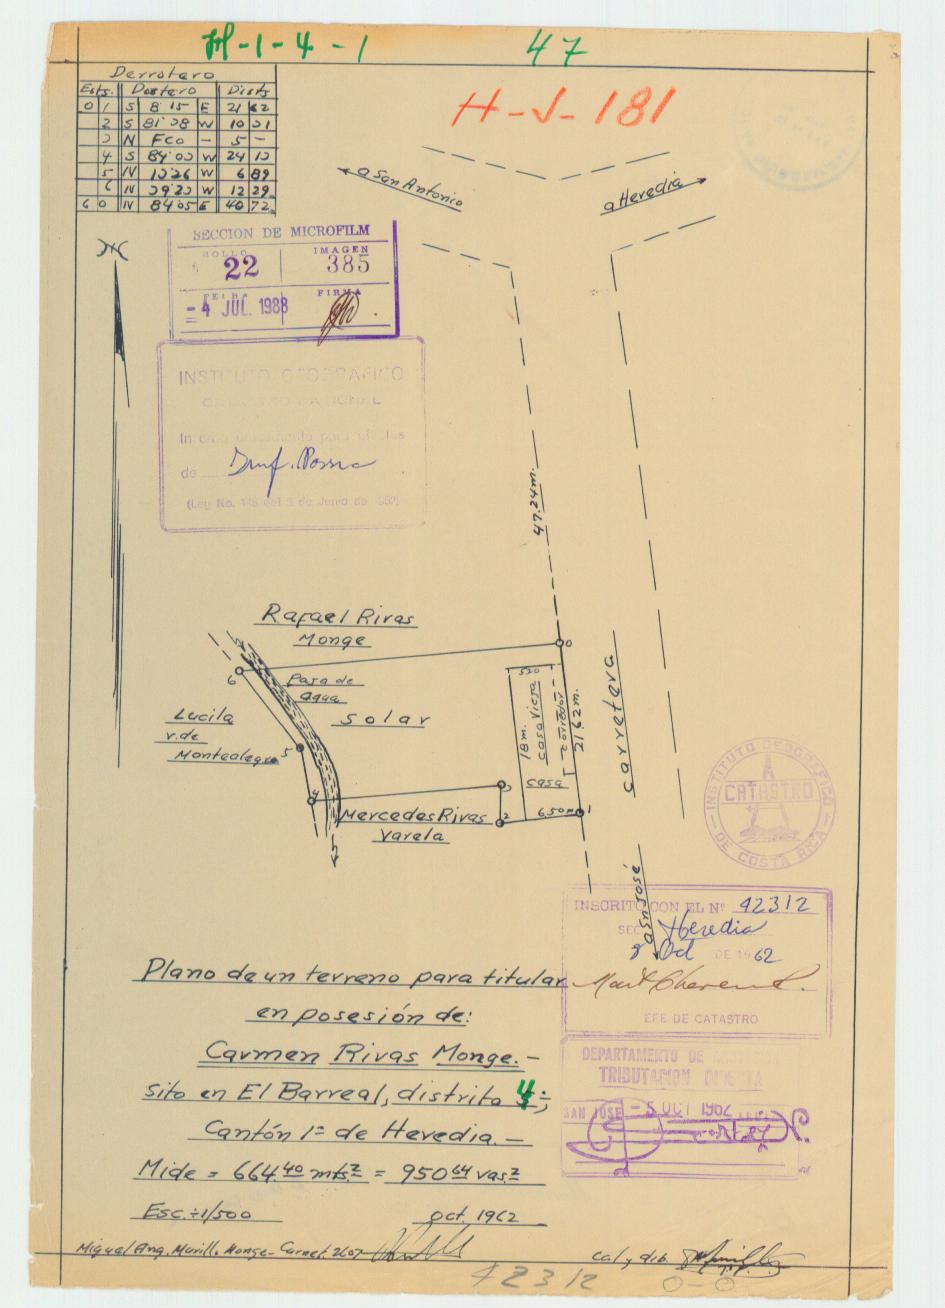 H-1-4-1
47
Derrotero
Ests. Dostero Dists
0 1 S 8 15 E 21 62
2 S 81 28 W 10 21
N Fco — 5 —
4 S W 24
5 N W 6 89
6 N W 12 29
6 0 N 84 05 E 40 72
H-J-181
a San Antonio
a Heredia
SECCION DE MICROFILM
ROLLO 22
IMAGEN 385
FECHA
FIRMA
-4 JUL. 1988
INSTITUTO GEOGRAFICO
CATASTRO NACIONAL
de
(Ley No. de Junio de
47.24 m.
Rafael Rivas
Monge
0
6
Pasa de
agua
solar
Lucila
v. de
Montealegre
5
4
520
18 m.
casa vieja
corredor
21 62 m.
casa
6.50 m
3
2
1
Mercedes Rivas
Varela
carretera
a Sn José
INSTITUTO GEOGRAFICO
CATASTRO
DE COSTA RICA
INSCRITO CON EL Nº 42312
SEC Heredia
8 Oct DE 1962
EFE DE CATASTRO
DEPARTAMENTO DE
TRIBUTACION DIRECTA
SAN JOSE -5 OCT 1962
Plano de un terreno para titular
en posesión de:
Carmen Rivas Monge.-
sito en El Barreal, distrito 4
Cantón 1º de Heredia.-
Mide = 664.40 mts.2 = 950.64 vas.2
Esc. ÷ 1/500
oct. 1962
Miguel Ang. Murillo Monge- Carnet. 2607
cal y dib.
42312